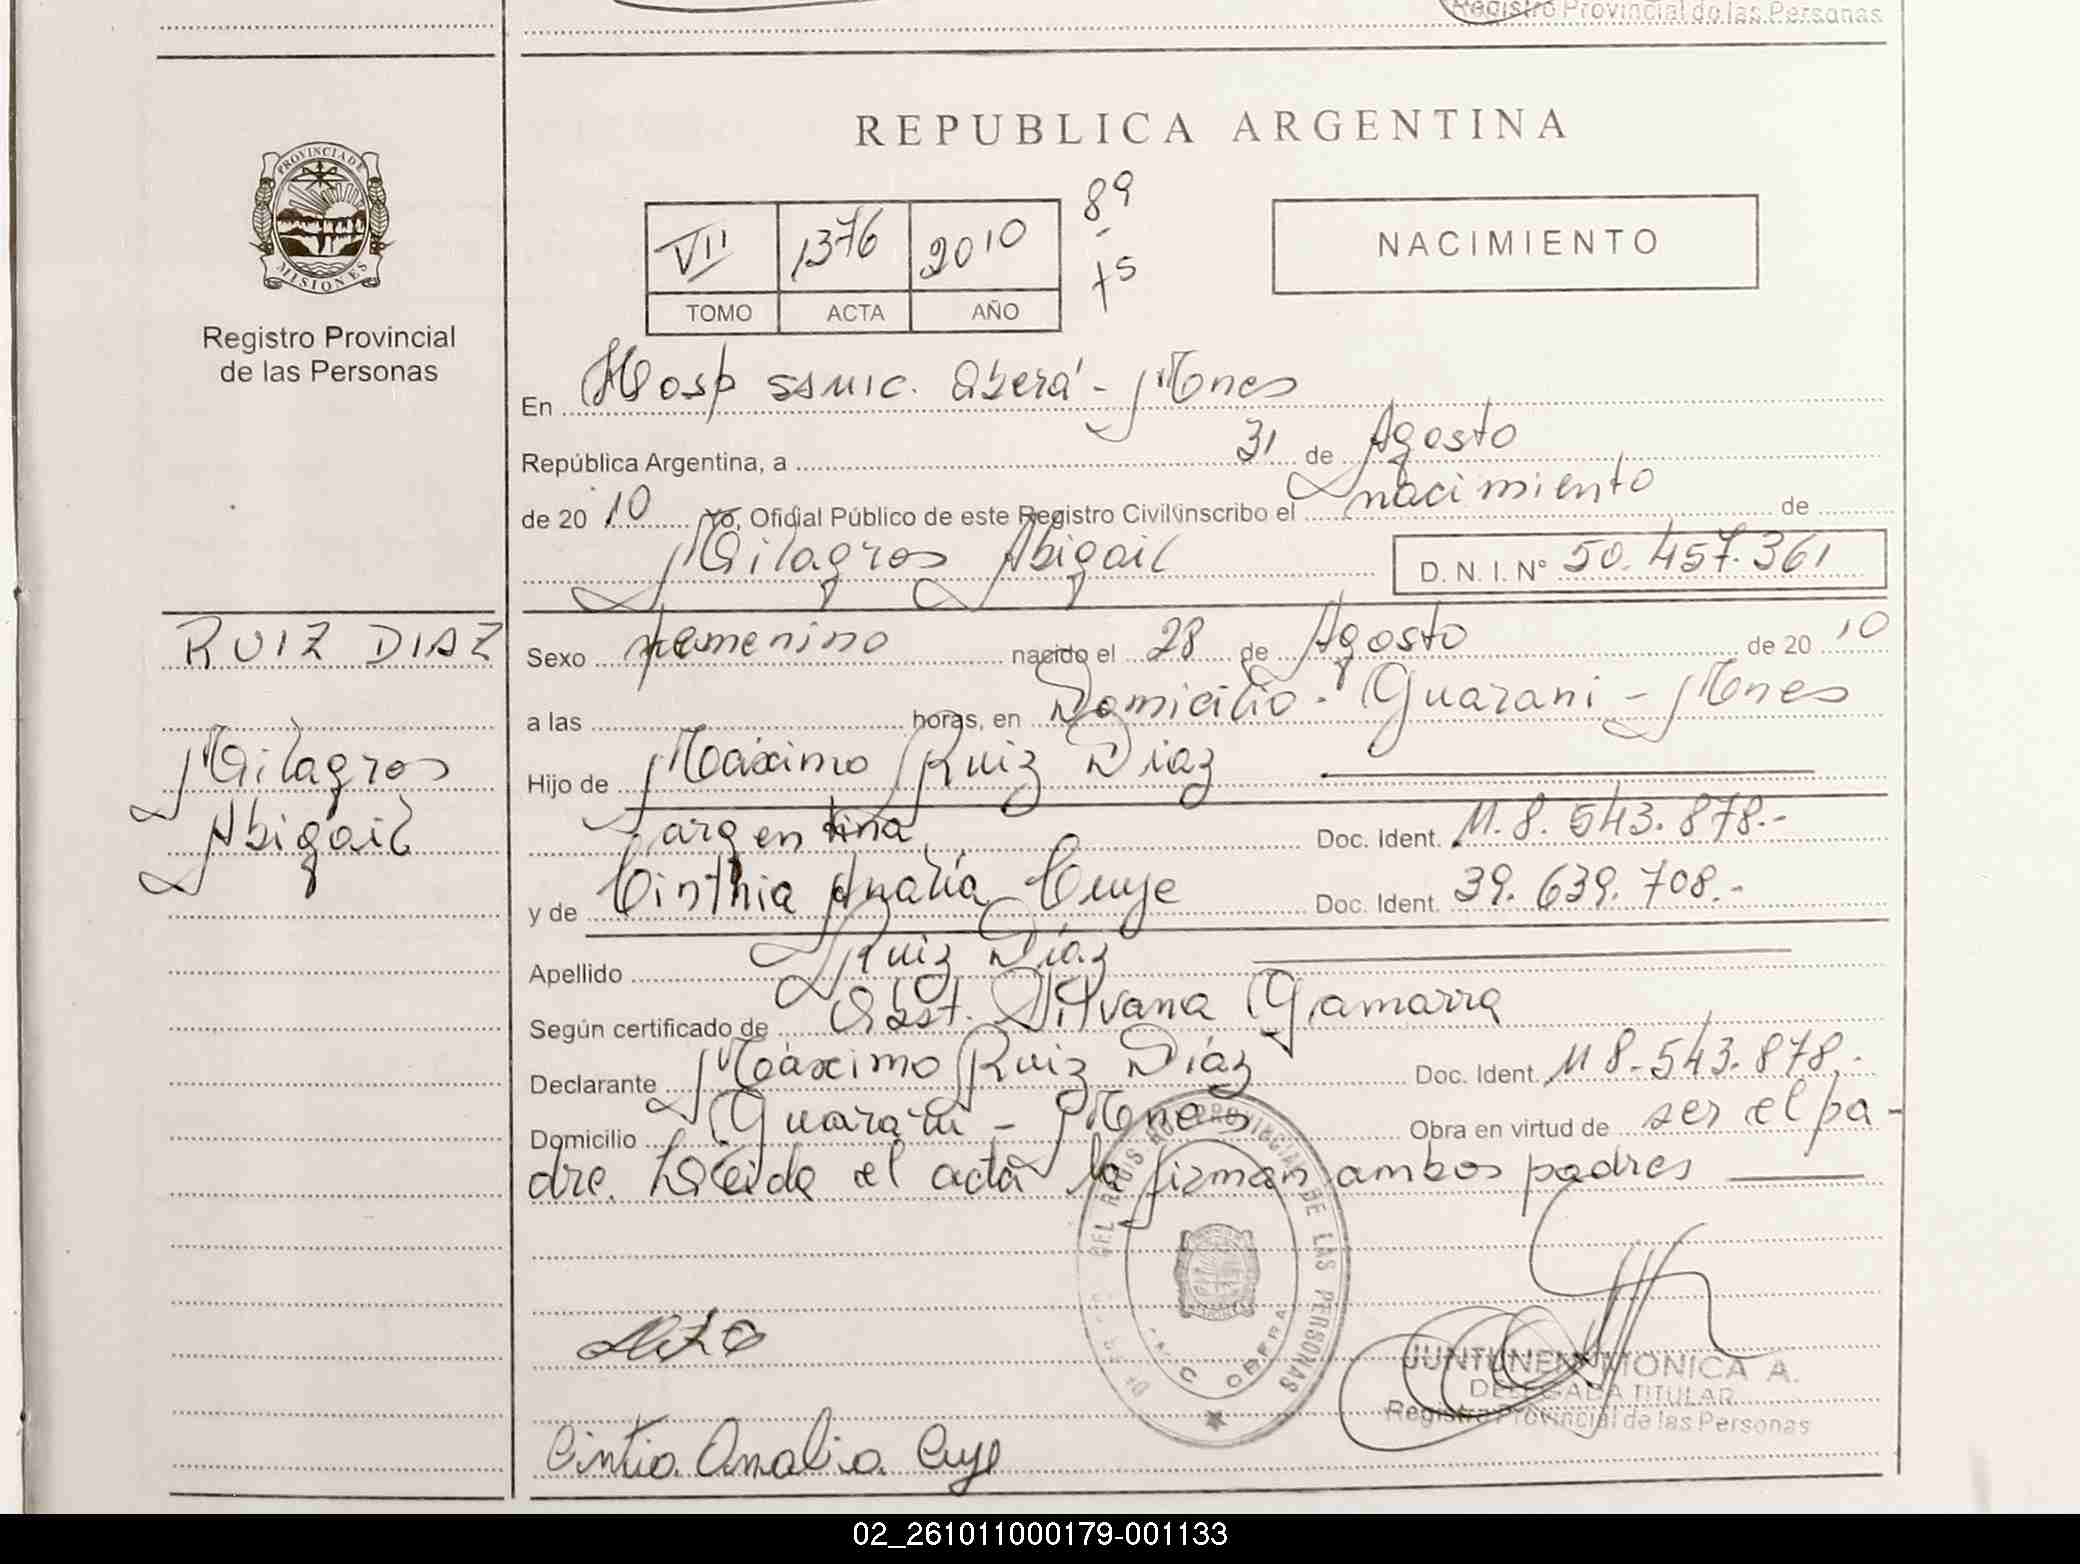 Registro Provincial de las Personas
REPUBLICA ARGENTINA
PROVINCIA DE
MISIONES
Registro Provincial
de las Personas
VII 1376 2010
TOMO ACTA AÑO
89
-
75
NACIMIENTO
En Hosp SSMIC. Oberá - Mnes
República Argentina, a 31 de Agosto
de 2010 Yo, Oficial Público de este Registro Civil inscribo el nacimiento de
Milagros Abigail D. N. I. N° 50.457.361
RUIZ DIAZ
Milagros
Abigail
Sexo femenino nacido el 28 de Agosto de 2010
a las horas, en Domicilio - Guarani - Mnes
Hijo de Máximo Ruiz Diaz
argentina Doc. Ident. M. 8. 543. 878.-
y de Cinthia Analía Cuye Doc. Ident. 39. 639. 708.-
Apellido Ruiz Díaz
Según certificado de Obst. Silvana Gamarra
Declarante Máximo Ruiz Díaz Doc. Ident. M 8.543.878.-
Domicilio Guarani - Mnes Obra en virtud de ser el pa-
dre. Leida el acta la firman ambos padres
DEL REGISTRO PROVINCIAL DE LAS PERSONAS
OBERA
JUNTUNEN MONICA A.
DELEGADA TITULAR
Registro Provincial de las Personas
Cintia Analia Cuye
02_261011000179-001133